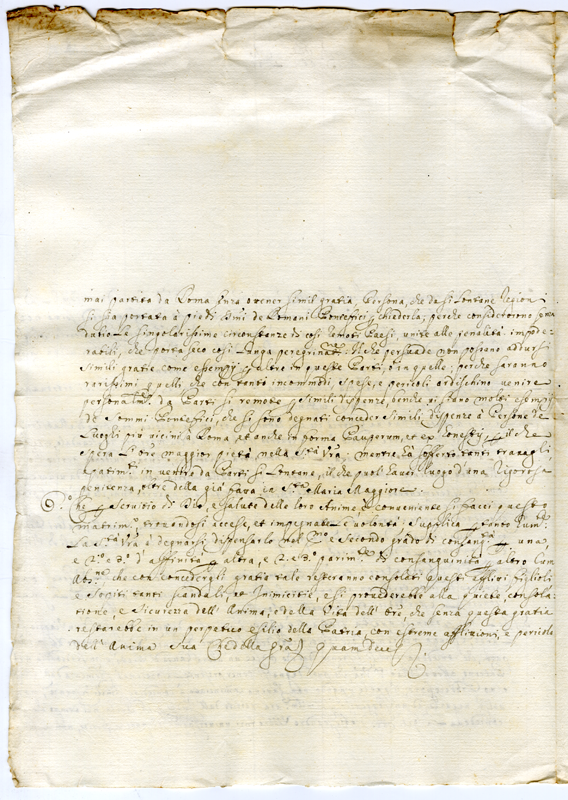 mai partito da Roma senza ottener simil gratia, Persona, che da sì lontane Regioni
si sia portata à piedi simi de Romani Pontefici p chiederla; perche considerorno senza
dubio le singolarissime circonstanze di così remoti Paesi, unite alle penalità impode-
rabili, che porta seco così lunga peregrinat.ne Il che persuade non possano addursi
simili gratie come esempij p altre in queste Parti, ò in quelle; perche saranno
rarissimi quelli, che con tanto incommodi, spese, e pericoli ardischino venire
personalm.te da Parti sì remote p simili dispenze, benche vi siano molti esempij
de Sommi Pontefici, che si sono degnati conceder simili dispenze à Persone de
Luoghi più vicini à Roma, et anche in forma Pauperum, et ex honestis il che
spera l'Ore maggior pietà nella S.tà V.ra mentre La offerto tanti travagli
e patim.ti in venire da Parti sì Lontane, il che può haver luogo d'una Rigorosa
penitenza, oltre della già fatta in S.ta Maria Maggiore.
6.° che p servitio di Dio, e salute delle loro Anime, è conveniente si facci questo
matrim.o trovandosi accese, et impegnate le volontà; Supplica p tanto hum.te
La S.tà V.ra à degnarsi dispensarlo nel P.o e Secondo grado di consang.tà p una,
e 2.° e 3.° d'affinità p altra, e 2. e 3.° parim.te di consanguinità p altro Cam
che con concedergli gratia tale resteranno consolati questi figlioli
e sopiti tanti scandali, et Inimicitie, e si provederebbe alla quiete, consola-
tione, e sicurezza dell'Anima, e della Vita dell'Ore, che senza questa gratia
restarebbe in un perpetuo esilio della Patria, con estreme afflizioni, e pericolo
dell'Anima sua Che della gra. quam Deus